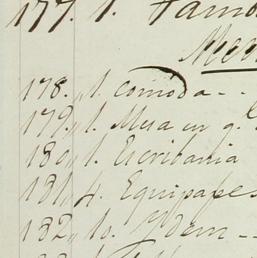 177. 1. Tambo
178. „1. Comoda - -
179„ 1. Mesa en q.e
180„ 1. Escribania
181„ 4. Equipages
182„ 10. Ydem - -